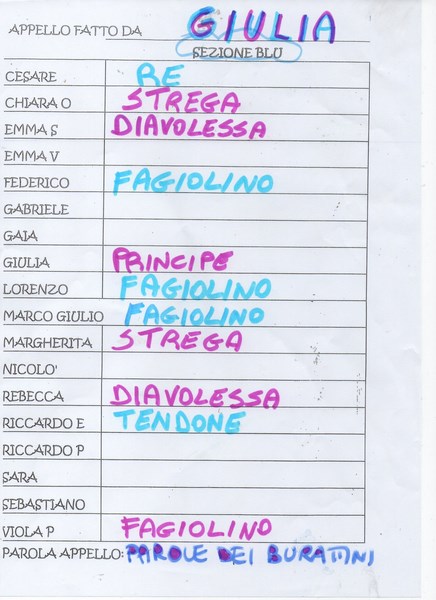 APPELLO FATTO DA GIULIA
SEZIONE BLU
CESARE RE
CHIARA O STREGA
EMMA S DIAVOLESSA
EMMA V
FEDERICO FAGIOLINO
GABRIELE
GAIA
GIULIA PRINCIPE
LORENZO FAGIOLINO
MARCO GIULIO FAGIOLINO
MARGHERITA STREGA
NICOLO'
REBECCA DIAVOLESSA
RICCARDO E TENDONE
RICCARDO P
SARA
SEBASTIANO
VIOLA P FAGIOLINO
PAROLA APPELLO: PAROLE DEI BURATTINI